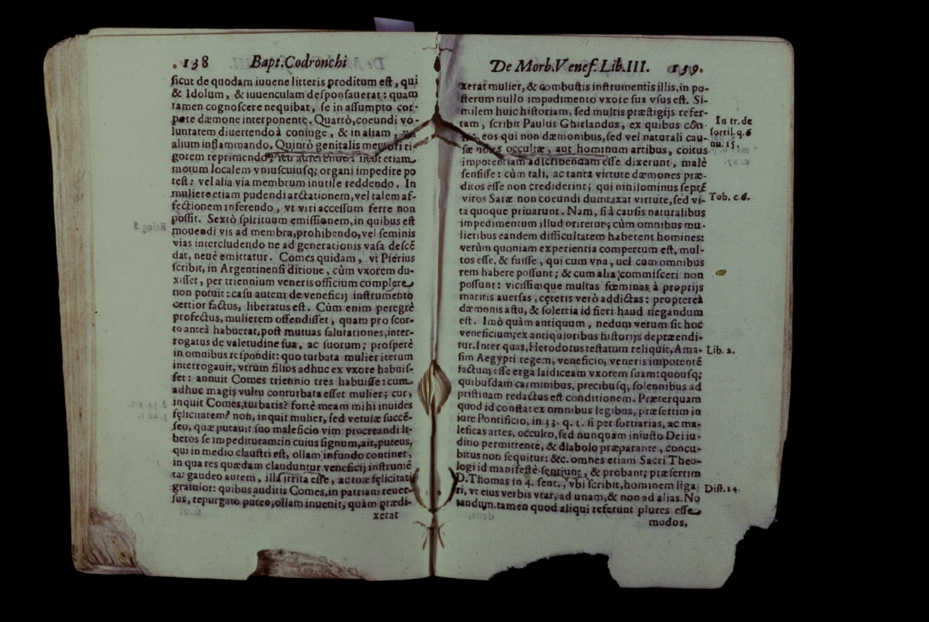 138 Bapt. Codronchi
ſicut de quodam iuuene litteris proditum eſt, qui
& Idolum, & iuuenculam deſponſauerat: quam
tamen cognoſcere nequibat, ſe in aſſumpto cor-
pore dæmone interponente. Quartò, coeundi vo-
luntatem diuertendo à coniuge, & in aliam,
alium inflammando. Quintò genitalis membri ri-
gorem reprimendo,
motum localem vniuſcuiuſq; organi impedite po
teſt: vel alia via membrum inutile reddendo. In
muliere etiam pudendi arctationem, vel talem af-
fectionem inferendo, vt viri acceſſum ferre non
poſſit. Sextò ſpirituum emiſſionem, in quibus eſt
mouendi vis ad membra, prohibendo, vel ſeminis
vias intercludendo ne ad generationis vaſa deſcē
dat, neuè emittatur. Comes quidam, vt Pierius
ſcribit, in Argentinenſi ditione, cùm vxorem du-
xiſſet, per triennium veneris officium complere
non potuit: caſu autem de veneficij inſtrumento
certior factus, liberatus eſt. Cùm enim peregrè
profectus, mulierem offendiſſet, quam pro ſcor-
to anteà habuerat, poſt mutuas ſalutationes, inter-
rogatus de valetudine ſua, ac ſuorum; proſperè
in omnibus reſpondit: quo turbata mulier iterum
interrogauit, vtrum filios adhuc ex vxore habuiſ-
ſet: annuit Comes triennio tres habuiſſe: cum
adhuc magis vultu conturbata eſſet mulier; cur,
inquit Comes, turbatis? fortè meam mihi inuides
felicitatem? non, inquit mulier, ſed vetulæ ſuccē-
ſeo, quæ putauit ſuo maleficio vim procreandi li-
beros ſe impedituram: in cuius ſignum, ait, puteus,
qui in medio clauſtri eſt, ollam infundo continet,
in qua res quædam clauduntur veneficij inſtrumē
ta: gaudeo autem, illa irrita eſſe, ac tuæ felicitati
gratulor: quibus auditis Comes, in patriam reuer-
ſus, repurgato puteo, ollam inuenit, quàm prædi-
xerat
De Morb. Venef. Lib. III. 139.
xerat mulier, & combuſtis inſtrumentis illis, in po-
ſterum nullo impedimento vxore ſua vſus eſt. Si-
milem huic hiſtoriam, ſed multis præſtigijs refer-
tam, ſcribit Paulus Ghirlandus, ex quibus cōn
eos qui non dæmonibus, ſed vel naturali cau-
ſæ occultæ, aut hominum artibus, coitus
impotentiam adſcribendam eſſe dixerunt, malè
ſenſiſſe: cùm tali, ac tanta virtute dæmones præ-
ditos eſſe non crediderint; qui nihilominus ſeptē
viros Saræ non coeundi dumtaxat virtute, ſed vi-
ta quoque priuarunt. Nam, ſi à cauſis naturalibus
impedimentum illud oriretur; cùm omnibus mu-
lieribus eandem difficultatem haberent homines:
verùm quoniam experientia compertum eſt, mul-
tos eſſe, & fuiſſe, qui cum vna, vel cum omnibus
rem habere poſſunt; & cum alia commiſceri non
poſſunt: viciſſimque multas fœminas à proprijs
maritis auerſas, cęteris verò addictas: proptereà
dæmonis aſtu, & ſolertia id fieri haud negandum
eſt. Imò quàm antiquum, nedum verum ſit hoc
veneficium; ex antiquioribus hiſtorijs deprændi-
tur. Inter quas, Herodotus teſtatum reliquit, Ama-
ſim Aegypti regem, veneficio, veneris impotentē
factum eſſe erga laidiceam vxorem ſuam: quouſq;
quibuſdam carminibus, precibuſq; ſolennibus ad
priſtinam redactus eſt conditionem. Præterquam
quod id conſtat ex omnibus legibus, præſertim in
iure Pontificio, in 33. q. 1. ſi per ſortiarias, ac ma-
leficas artes, occulto, ſed nunquam iniuſto Dei iu-
dicio permittente, & diabolo præparante, concu-
bitus non ſequitur: &c. omnes etiam Sacri Theo-
logi id manifeſtè ſentiunt, & probant; præſertim
D. Thomas in 4. ſent., vbi ſcribit, hominem liga
ri, vt eius verbis vtar, ad unam, & non ad alias. No
tandum, tamen quod aliqui referunt plures eſſe
modos,
In tr. de
ſortil. q. 6
nu. 15.
Tob. c. 6.
Lib. 2.
Diſt. 24.